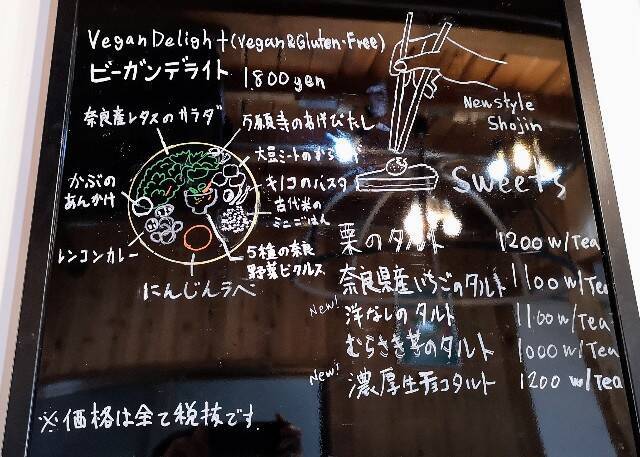 Vegan Delight (Vegan & Gluten-Free)
ビーガンデライト 1800yen
奈良産レタスのサラダ
万願寺のあげびたし
大豆ミートのから
かぶの
あんかけ
キノコのパスタ
古代米の
ミニごはん
レンコンカレー
5種の奈良
野菜ピクルス
にんじんラペ
New style
Shojin
Sweets
栗のタルト 1200 w/Tea
奈良県産いちごのタルト 1100 w/Tea
New! 洋なしのタルト 1100 w/Tea
むらさき芋のタルト 1000 w/Tea
New! 濃厚生チョコタルト 1200 w/Tea
※価格は全て税抜です。